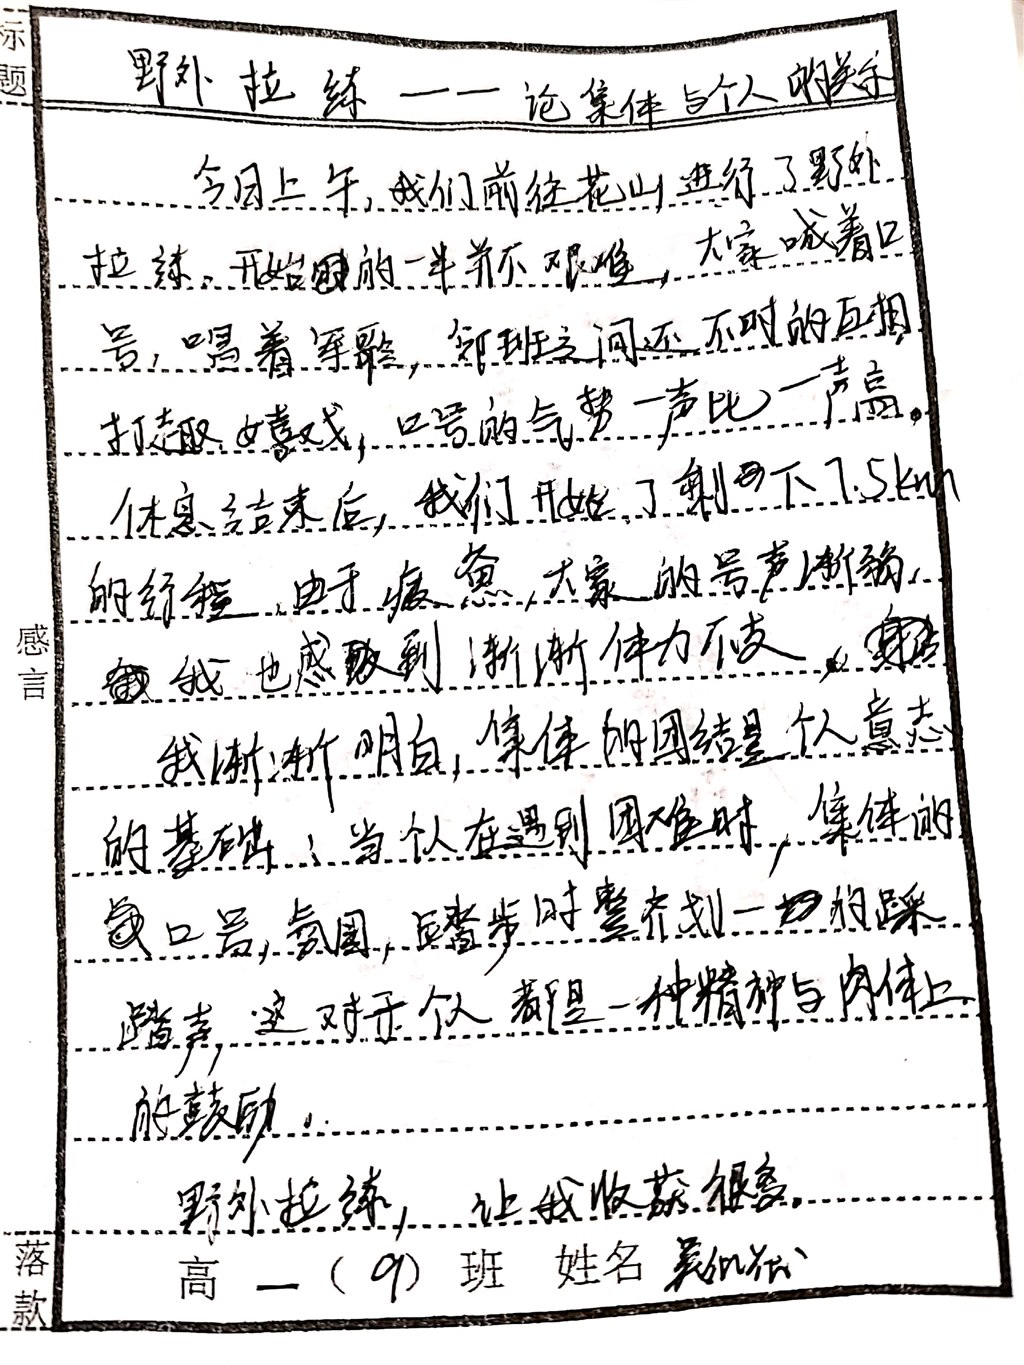 标题
野外拉练——论集体与个人的关系
今日上午,我们前往花山进行了野外
拉练。开始时的一半并不艰难,大家喊着口
号,唱着军歌,邻班之间还不时的互相
打趣嬉戏,口号的气势一声比一声高。
休息结束后,我们开始了剩下7.5km
的行程,由于疲惫,大家的号声渐弱,
我也感到渐渐体力不支,
我渐渐明白,集体的团结是个人意志
的基础;当个人在遇到困难时,集体的
口号,氛围,踏步时整齐划一的踩
踏声,这对于个人都是一种精神与肉体上
的鼓励。
野外拉练,让我收获很多。
感言
落款
高一(9)班 姓名